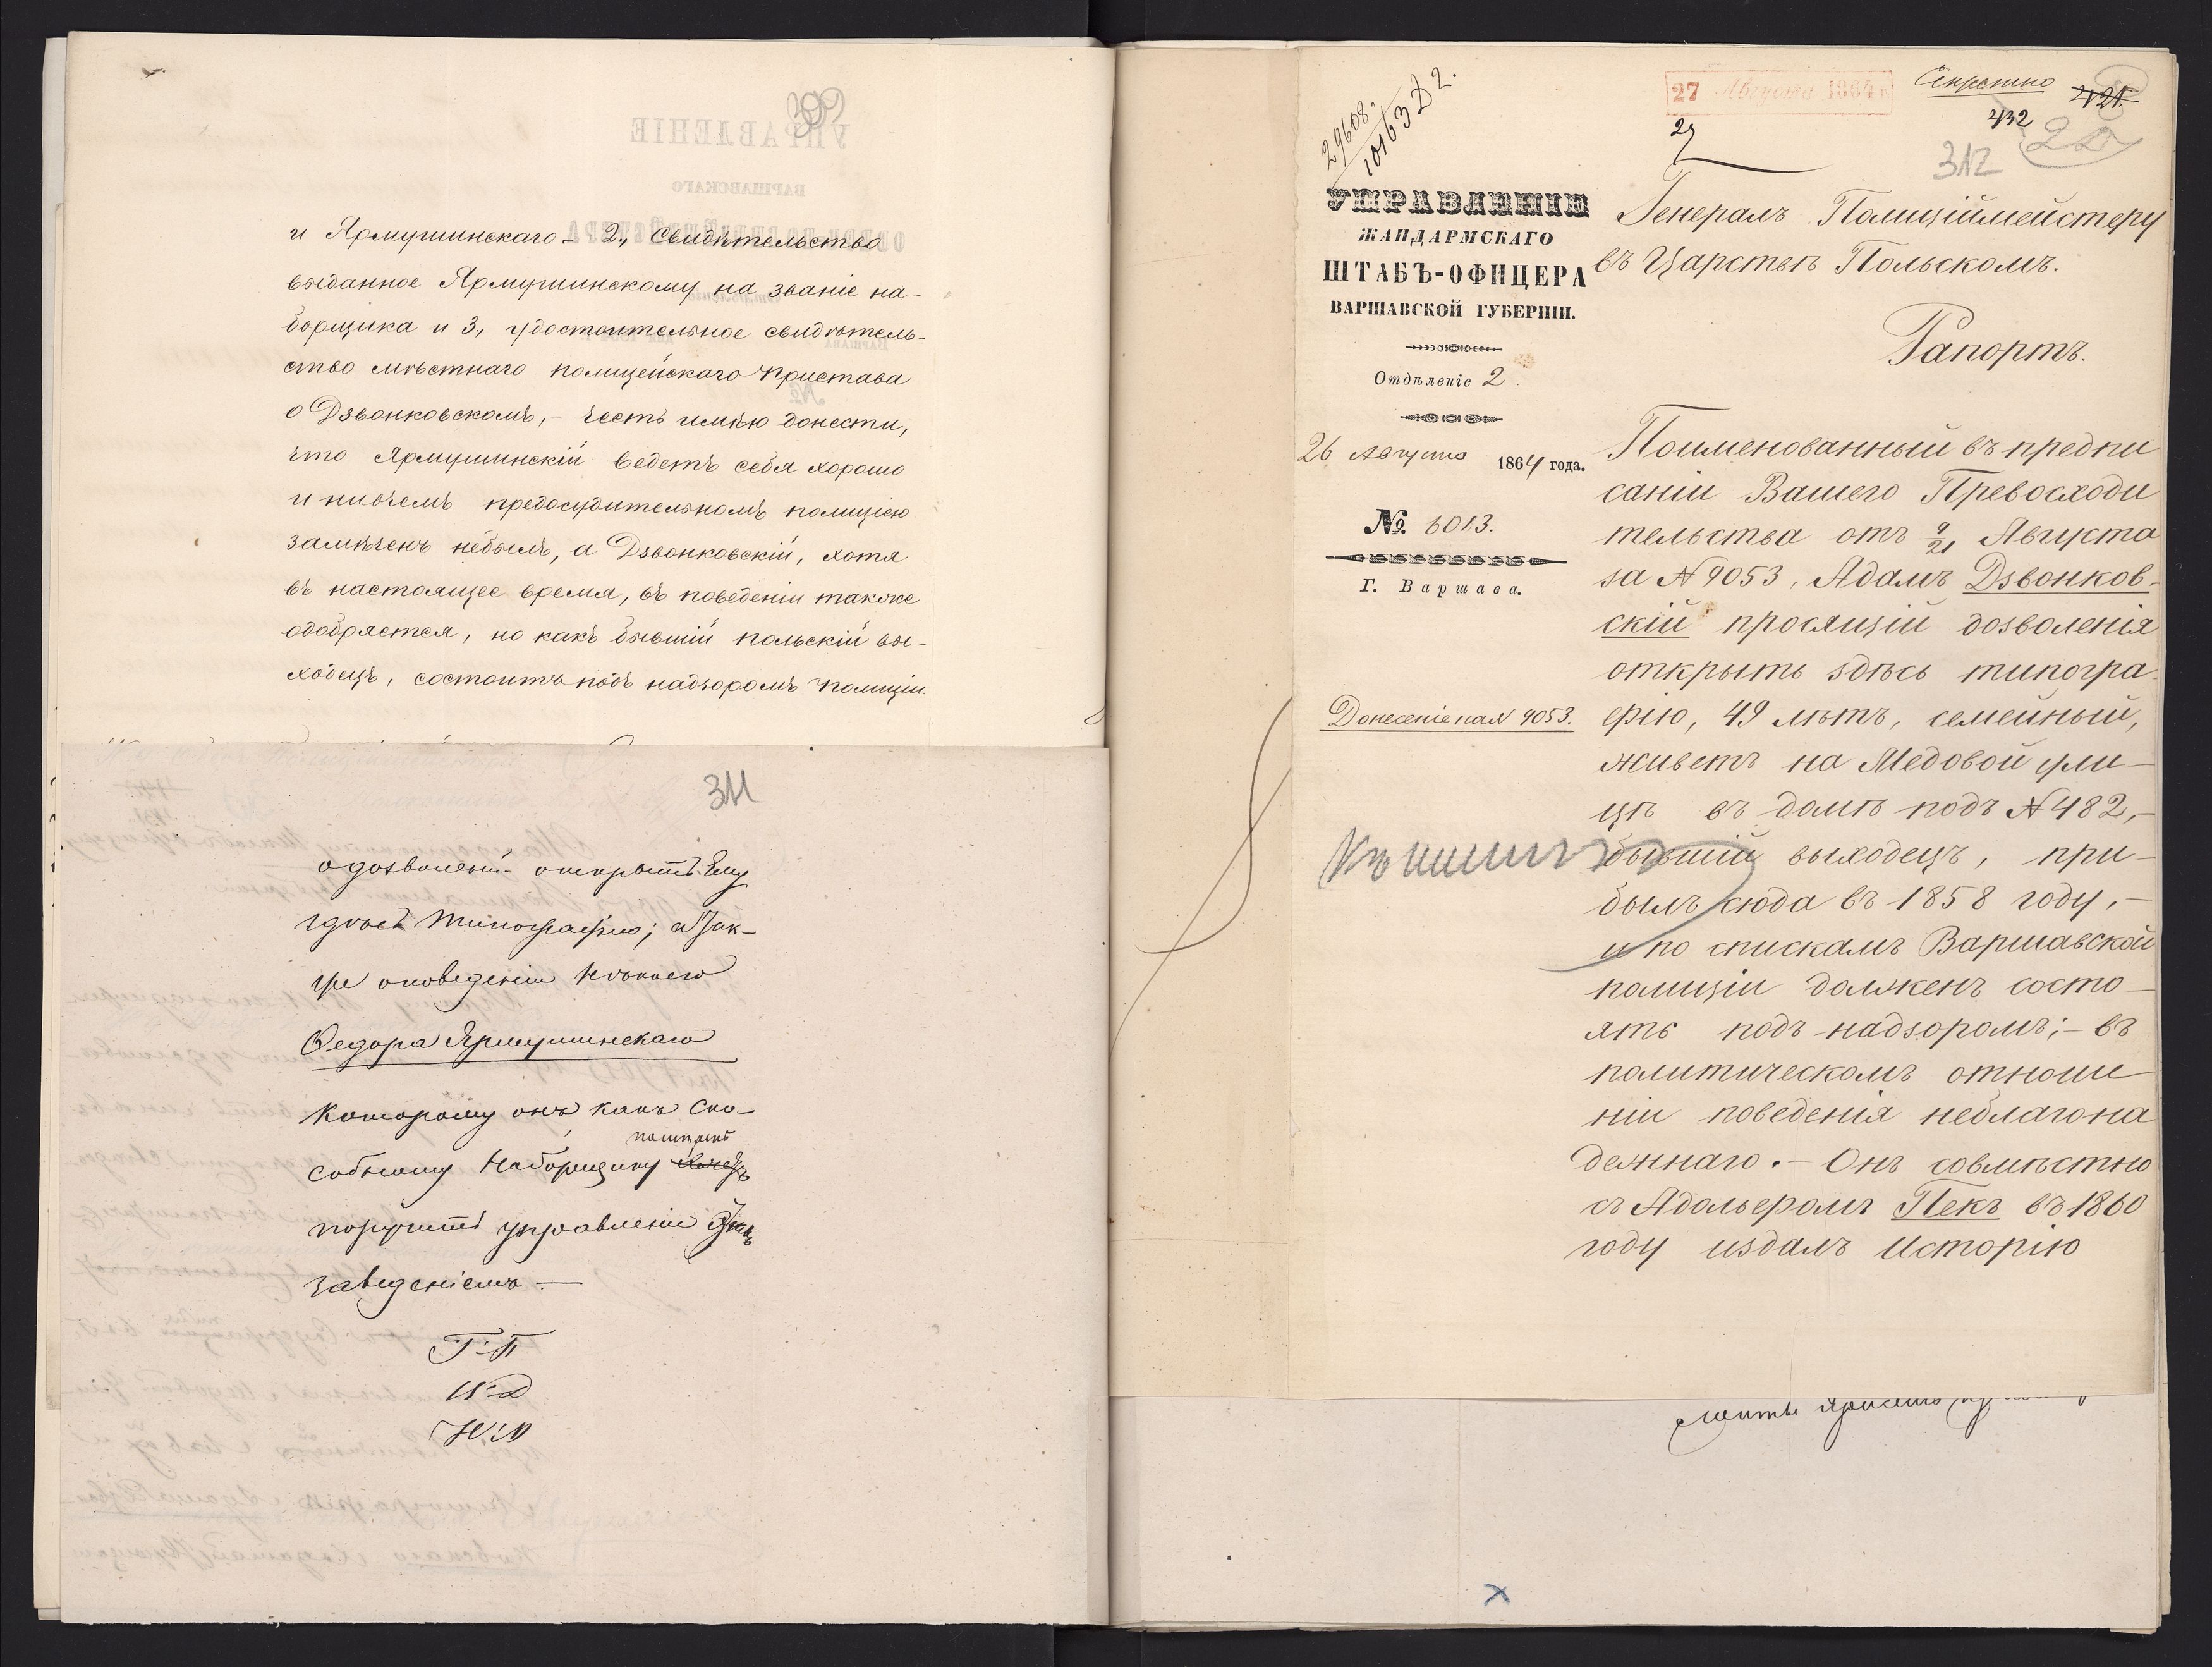 и Ярмушинскаго – 2., Свидѣтельство
выданное Ярмушинскому на званіе на-
борщика и 3., удостоительное свидѣтель-
ство мѣстнаго полицейскаго Пристава
о Дзвонковскомъ, – честь имѣю донести,
что Ярмушинскій ведетъ себя хорошо
и ни въ чемъ предосудительномъ полиціею
замѣченъ небылъ, а Дзвонковскій, хотя
въ настоящее время, въ поведеніи также
одобряется, но какъ бывшій польскій вы-
ходецъ, состоитъ подъ надзоромъ полиціи.
311
о дозволеніи открыть Ему
здѣсь Типографію; а Так-
же о поведеніи нѣкоего
Федора Ярмушинскаго
которому онъ какъ спо-
собному Наборщику
поручить управленіе
заведеніемъ —
Г. П.
И. Д.
Н. О.
29608.
10163 Д 2.
27 Августа 1864 г.
Секретно
421.
432
27
312
УПРАВЛЕНІЕ
ЖАНДАРМСКАГО
ШТАБЪ-ОФИЦЕРА
ВАРШАВСКОЙ ГУБЕРНІИ.
Отдѣленіе 2
26 Августа 1864 года.
№. 6013.
Г. Варшава.
Донесеніе на № 9053.
Генералъ Полиціймейстеру
въ Царствѣ Польскомъ.
Рапортъ.
Поименованный въ предпи
саніи Вашего Превосходи
тельства отъ 9/21 Августа
за № 9053, Адамъ Дзвонков-
скій просящій дозволенія
открыть здѣсь типогра
фію, 49 лѣтъ, семейный,
живетъ на Медовой ули-
цѣ въ домѣ подъ № 482,–
бывшій выходецъ, при-
былъ сюда въ 1858 году,–
и по спискамъ Варшавской
полиціи долженъ состо-
ять подъ надзоромъ;– въ
политическомъ отноше
ніи поведенія неблагона
дежнаго.– Онъ совмѣстно
съ Адольфомъ Пекъ въ 1860
году издалъ Исторію